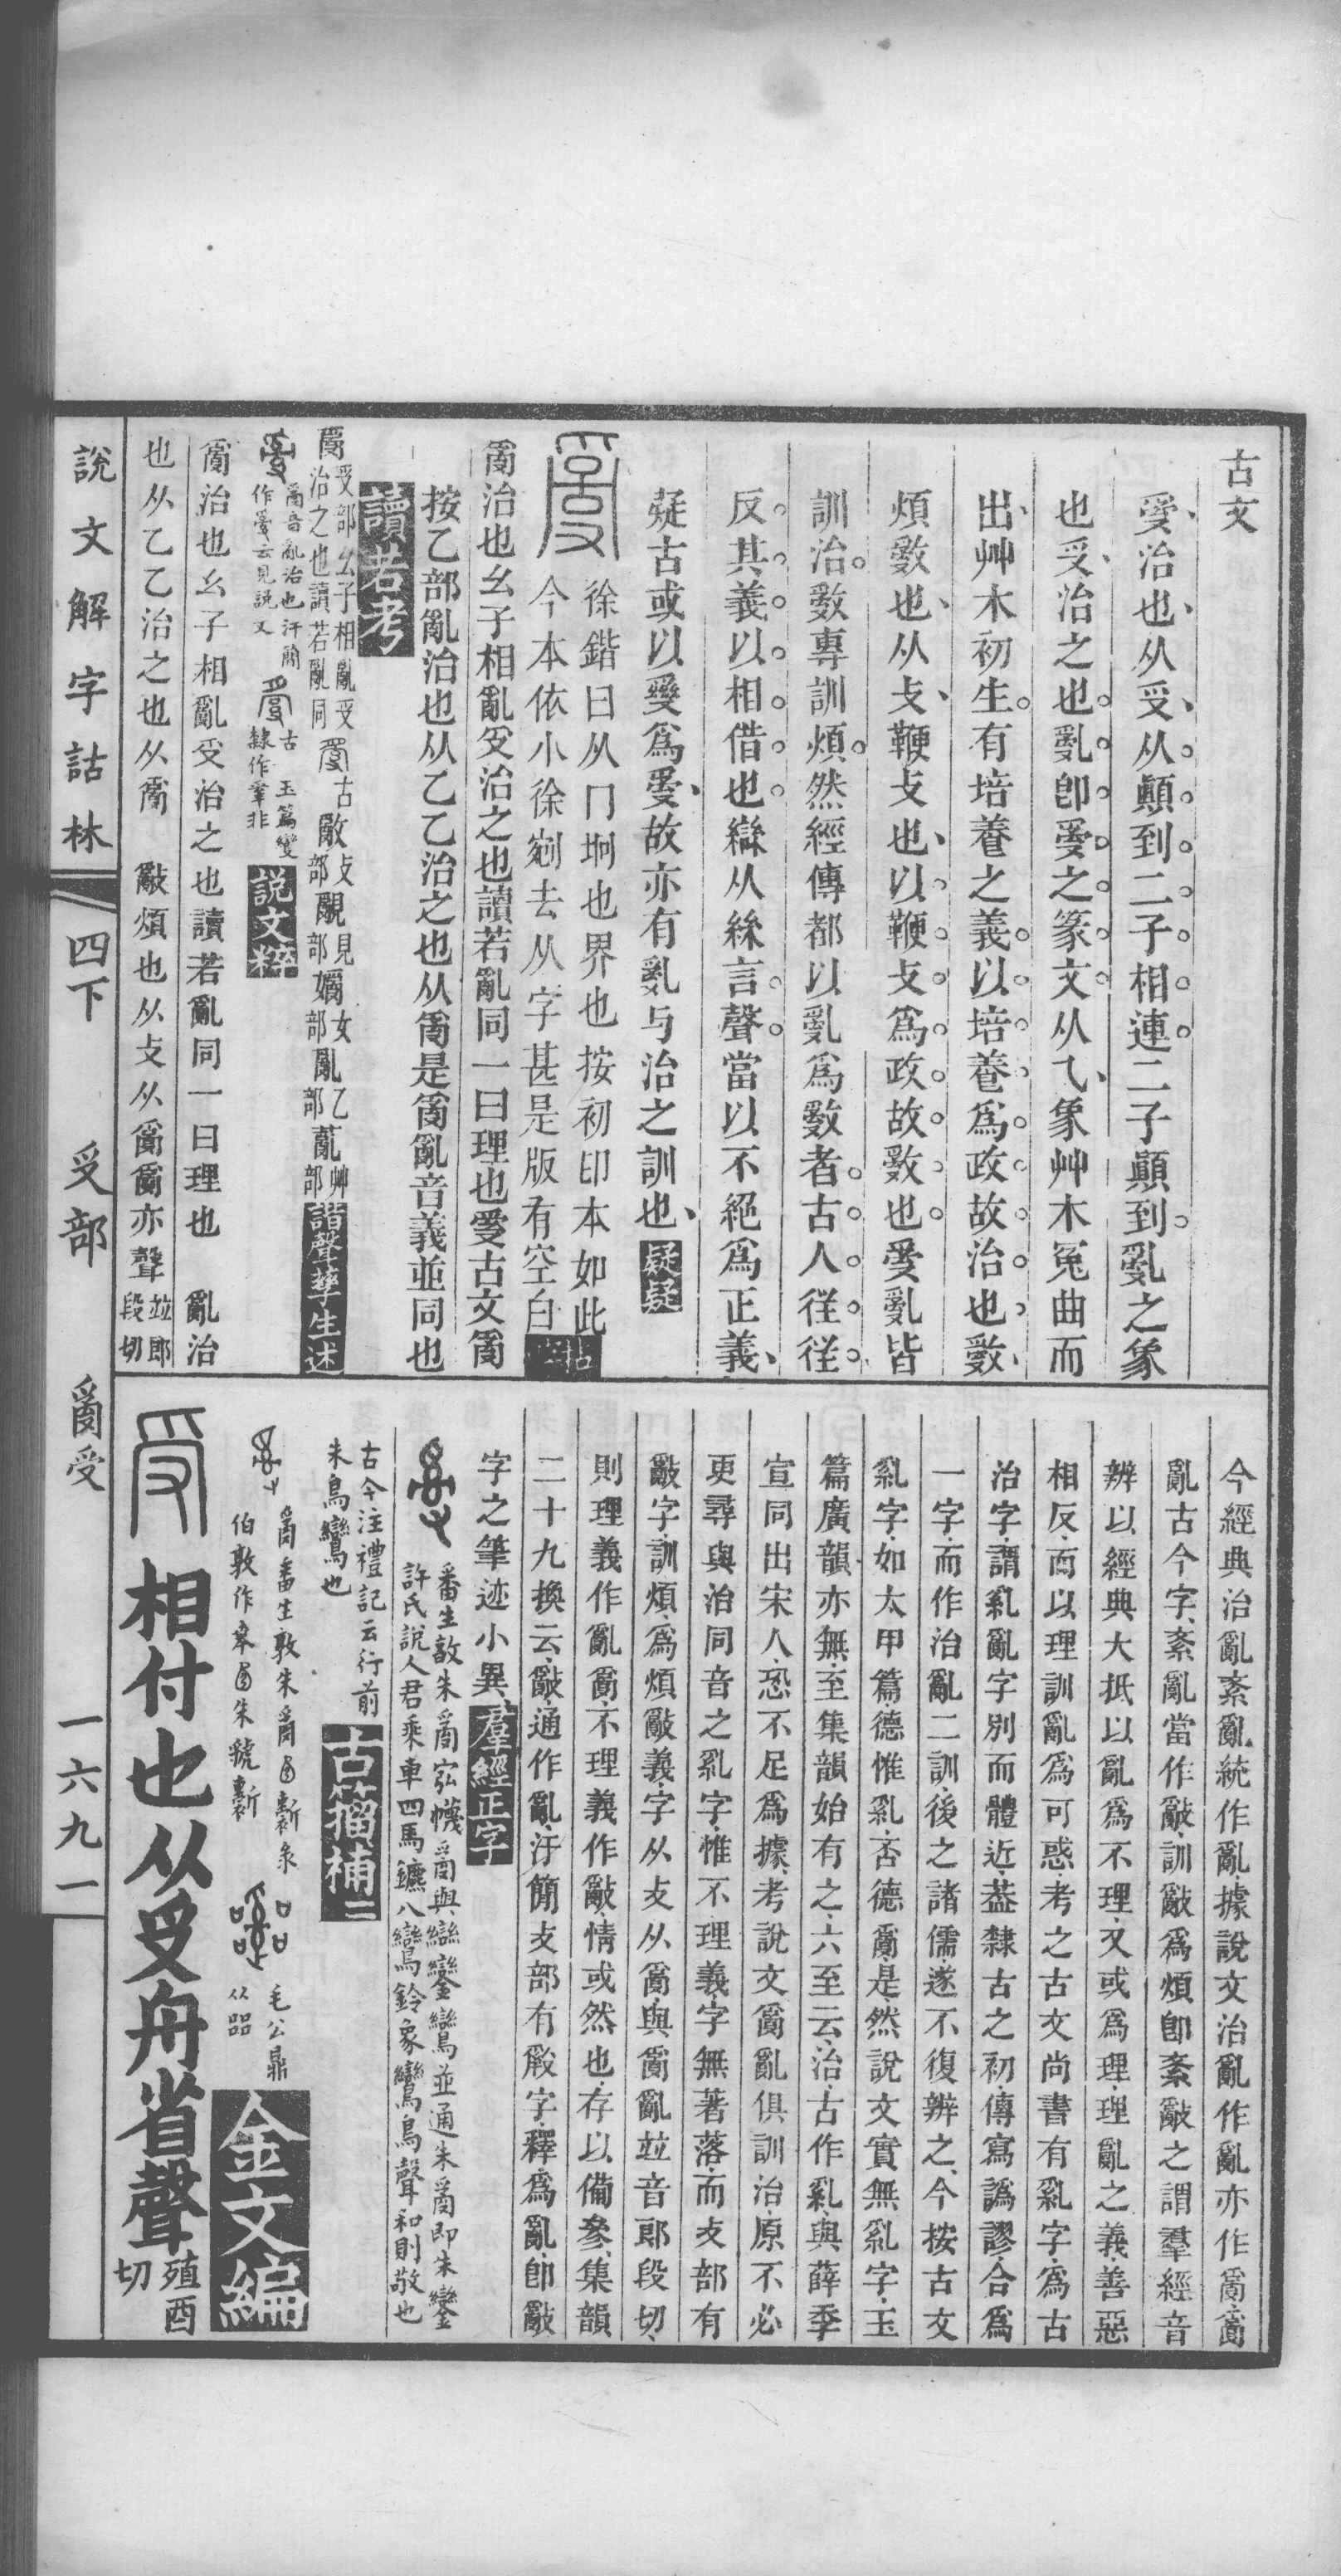 古文
𤔔治也从𠬪从顛到二子相連二子顛到亂之象
也𠬪治之也亂卽𤔔之篆文从乙象艸木冤曲而
出艸木初生有培養之義以培養爲政故治也敽
煩敽也从攴鞭攴也以鞭攴爲政故敽也𤔔亂皆
訓治敽專訓煩然經傳都以亂爲敽者古人往往
反其義以相借也䜌从絲言聲當以不絕爲正義
疑古或以䜌爲𤔔故亦有亂与治之訓也疑疑
徐鍇曰从冂坰也界也按初印本如此
今本依小徐剜去从字甚是版有空白
𤔔治也幺子相亂𠬪治之也讀若亂同一曰理也古文𤔔
按乙部亂治也从乙乙治之也从𤔔是𤔔亂音義並同也
讀若考
𤔔𠬪部幺子相亂𠬪治之也讀若亂同古𢿢攴部覶見部嫡女部亂乙部薍艸部諧聲孳生述
𤔔音亂治也汗簡作云見說文古玉篇變隸作非說文粹
𤔔治也幺子相亂𠬪治之也讀若亂同一曰理也 亂治
也从乙乙治之也从𤔔 𢿢煩也从攴从𤔔𤔔亦聲並郎段切
今經典治亂紊亂統作亂據說文治亂作亂亦作𤔔𤔔
亂古今字紊亂當作𢿢訓𢿢爲煩卽紊𢿢之謂羣經音
辨以經典大抵以亂爲不理又或爲理理亂之義善惡
相反而以理訓亂爲可惑考之古文尚書有乿字爲古
治字謂乿亂字別而體近葢隸古之初傳寫譌謬合爲
一字而作治亂二訓後之諸儒遂不復辨之今按古文
乿字如太甲篇德惟乿否德𤔔是然說文實無乿字玉
篇廣韻亦無至集韻始有之六至云治古作乿與薛季
宣同出宋人恐不足爲據考說文𤔔亂俱訓治原不必
更尋與治同音之乿字惟不理義字無著落而攴部有
𢿢字訓煩爲煩𢿢義字从攴从𤔔與𤔔亂並音郎段切
則理義作亂𤔔不理義作𢿢情或然也存以備參集韻
二十九換云𢿢通作亂汗簡攴部有字釋爲亂卽𢿢
字之筆迹小異羣經正字
番生敦朱𤔔宏幭𤔔與䜌鑾鸞並通朱𤔔即朱鑾
許氏說人君乘車四馬鑣八鸞鈴象鸞鳥聲和則敬也
古今注禮記云行前
朱鳥鸞也 古籀補二
𤔔番生敦朱𤔔𢑚
伯敦作朱虢 毛公鼎从㗊 金文編
相付也从𠬪舟省聲殖酉切
說文解字詁林 四下 𠬪部 𤔔受 一六九一